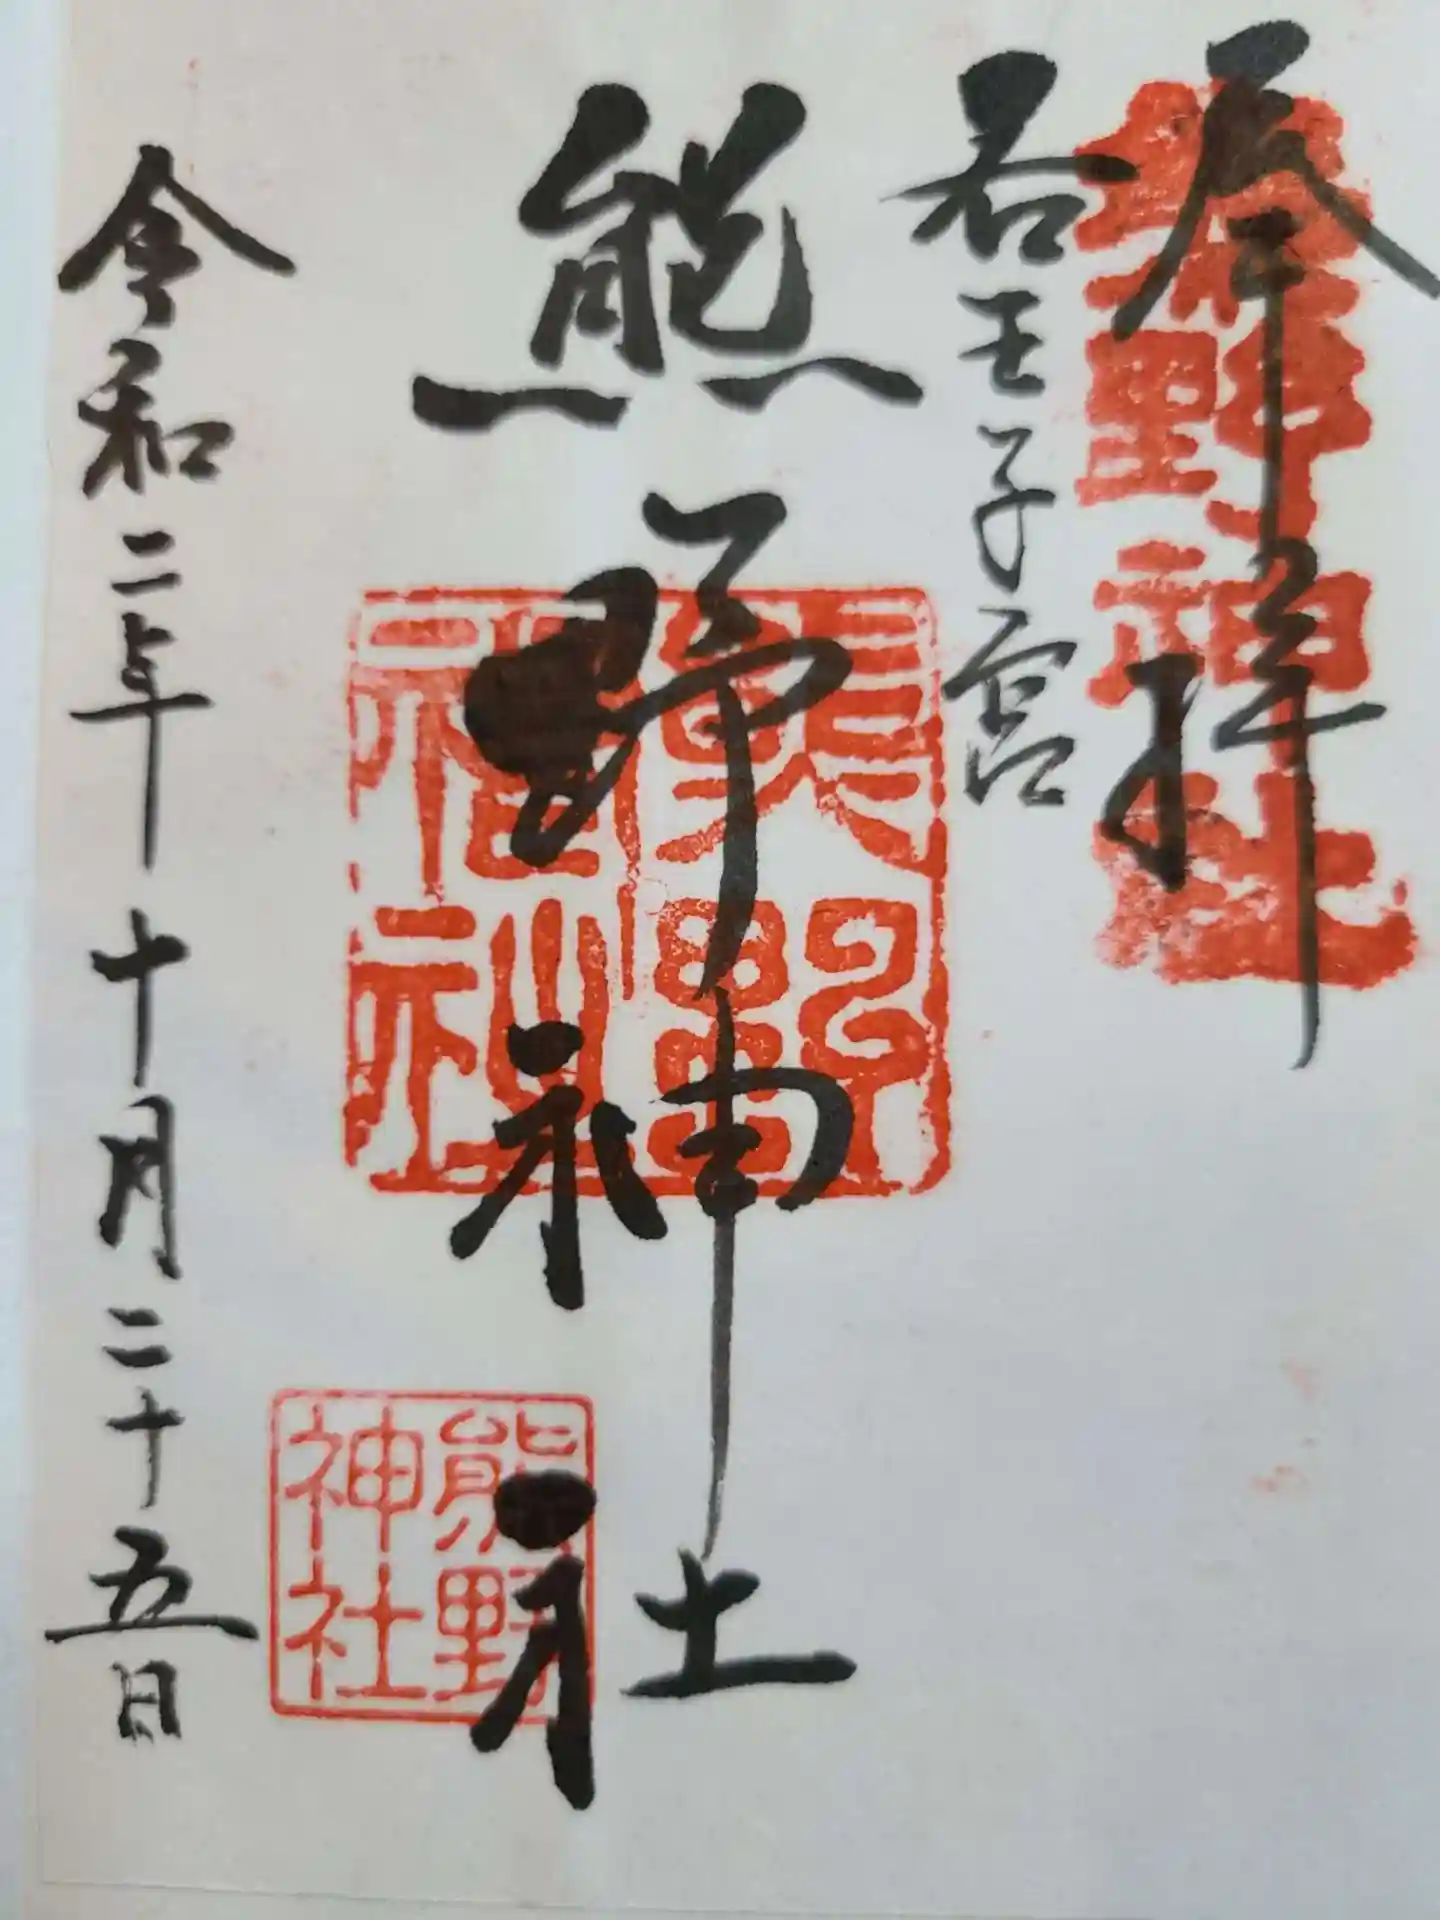 奉拝
若王子宮
熊野神社
令和二年十月二十五日
野神社
熊野神社
熊野神社